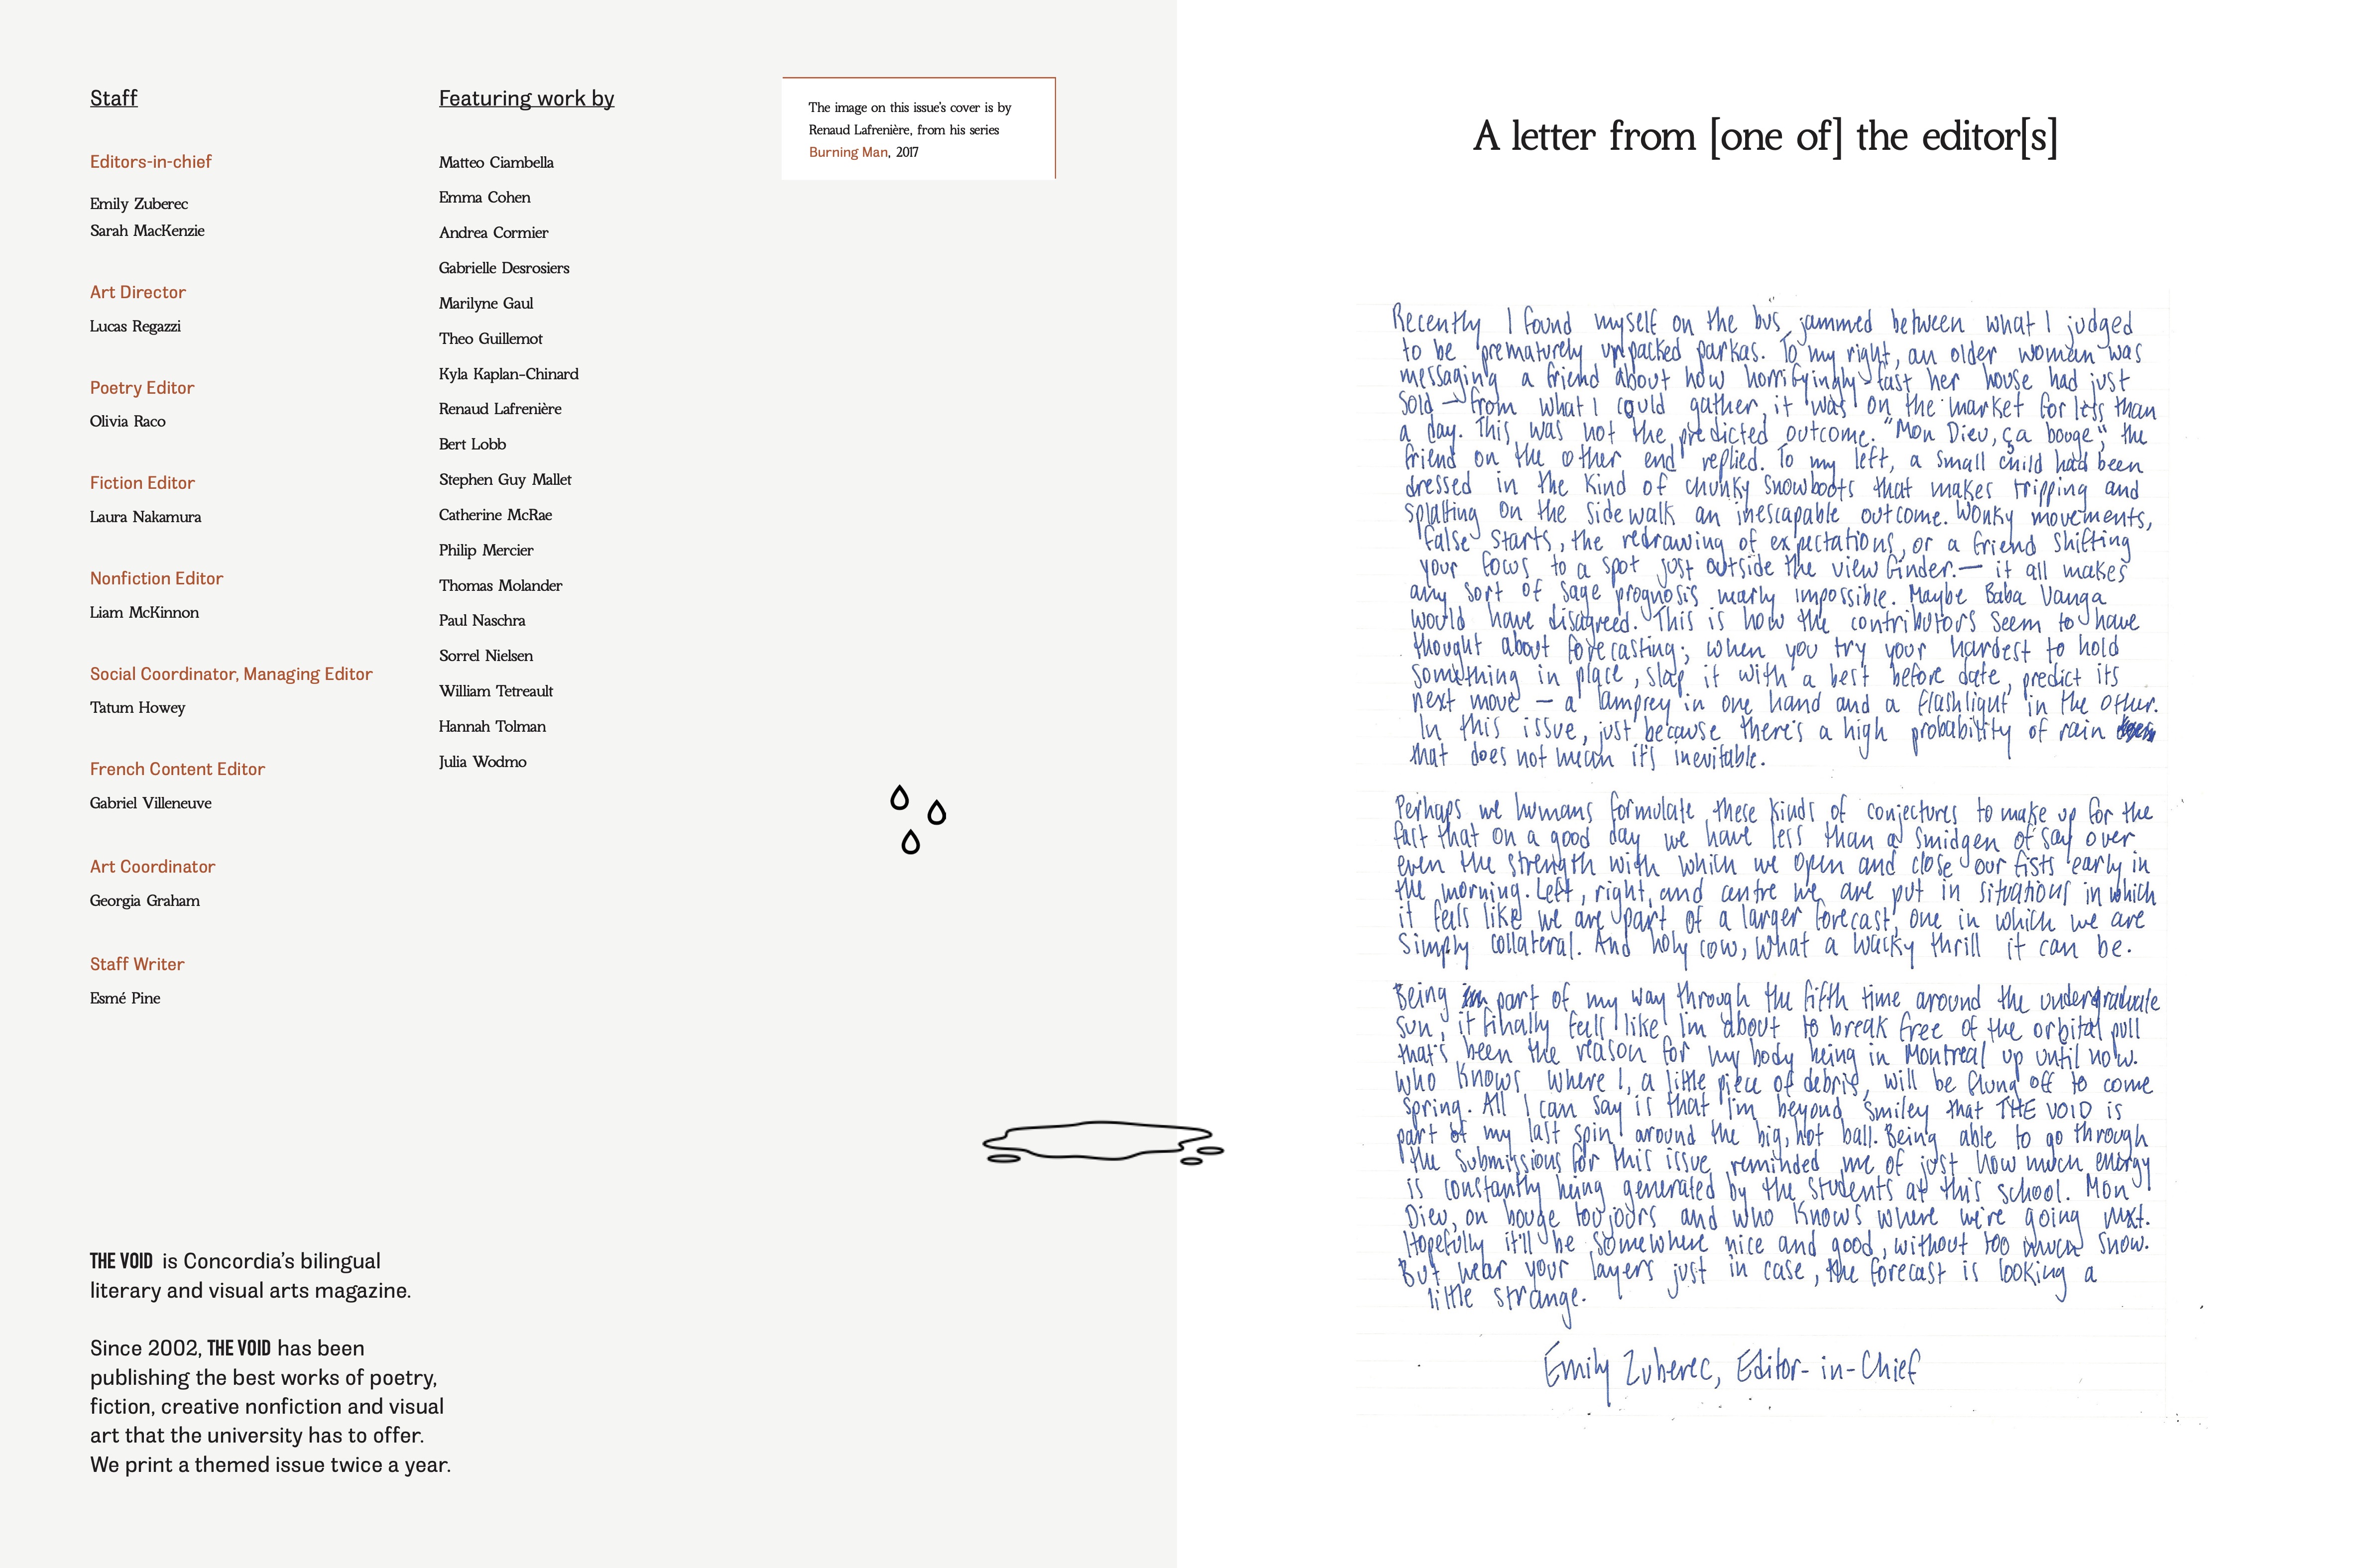 Staff
Editors-in-chief
Emily Zuberec
Sarah MacKenzie
Art Director
Lucas Regazzi
Poetry Editor
Olivia Raco
Fiction Editor
Laura Nakamura
Nonfiction Editor
Liam McKinnon
Social Coordinator, Managing Editor
Tatum Howey
French Content Editor
Gabriel Villeneuve
Art Coordinator
Georgia Graham
Staff Writer
Esmé Pine
Featuring work by
Matteo Ciambella
Emma Cohen
Andrea Cormier
Gabrielle Desrosiers
Marilyne Gaul
Theo Guillemot
Kyla Kaplan-Chinard
Renaud Lafrenière
Bert Lobb
Stephen Guy Mallet
Catherine McRae
Philip Mercier
Thomas Molander
Paul Naschra
Sorrel Nielsen
William Tetreault
Hannah Tolman
Julia Wodmo
The image on this issue's cover is by
Renaud Lafrenière, from his series
Burning Man, 2017
THE VOID is Concordia's bilingual
literary and visual arts magazine.
Since 2002, THE VOID has been
publishing the best works of poetry,
fiction, creative nonfiction and visual
art that the university has to offer.
We print a themed issue twice a year.
A letter from [one of] the editor[s]
Recently I found myself on the bus jammed between what I judged
to be prematurely unpacked parkas. To my right, an older woman was
messaging a friend about how horrifyingly fast her house had just
sold – from what I could gather, it was on the market for less than
a day. This was not the predicted outcome. "Mon Dieu, ça bouge", the
friend on the other end replied. To my left, a small child had been
dressed in the kind of chunky snowboots that makes tripping and
splatting on the sidewalk an inescapable outcome. Wonky movements,
false starts, the redrawing of expectations, or a friend shifting
your focus to a spot just outside the view finder. — it all makes
any sort of sage prognosis nearly impossible. Maybe Baba Vanga
would have disagreed. This is how the contributors seem to have
thought about forecasting; when you try your hardest to hold
something in place, slap it with a best before date, predict its
next move – a lamprey in one hand and a flashlight in the other.
In this issue, just because there's a high probability of rain
that does not mean it's inevitable.
Perhaps we humans formulate these kinds of conjectures to make up for the
fact that on a good day we have less than a smidgen of say over
even the strength with which we open and close our fists early in
the morning. Left, right, and centre we are put in situations in which
it feels like we are part of a larger forecast, one in which we are
simply collateral. And holy cow, what a wacky thrill it can be.
Being part of my way through the fifth time around the undergraduate
sun, it finally feels like I'm about to break free of the orbital pull
that's been the reason for my body being in Montreal up until now.
Who knows where I, a little piece of debris, will be flung off to come
spring. All I can say is that I'm beyond smiley that THE VOID is
part of my last spin around the big, hot ball. Being able to go through
the submissions for this issue reminded me of just how much energy
is constantly being generated by the students at this school. Mon
Dieu, on bouge toujours and who knows where we're going next.
Hopefully it'll be somewhere nice and good, without too much snow.
But wear your layers just in case, the forecast is looking a
little strange.
Emily Zuberec, Editor-in-Chief